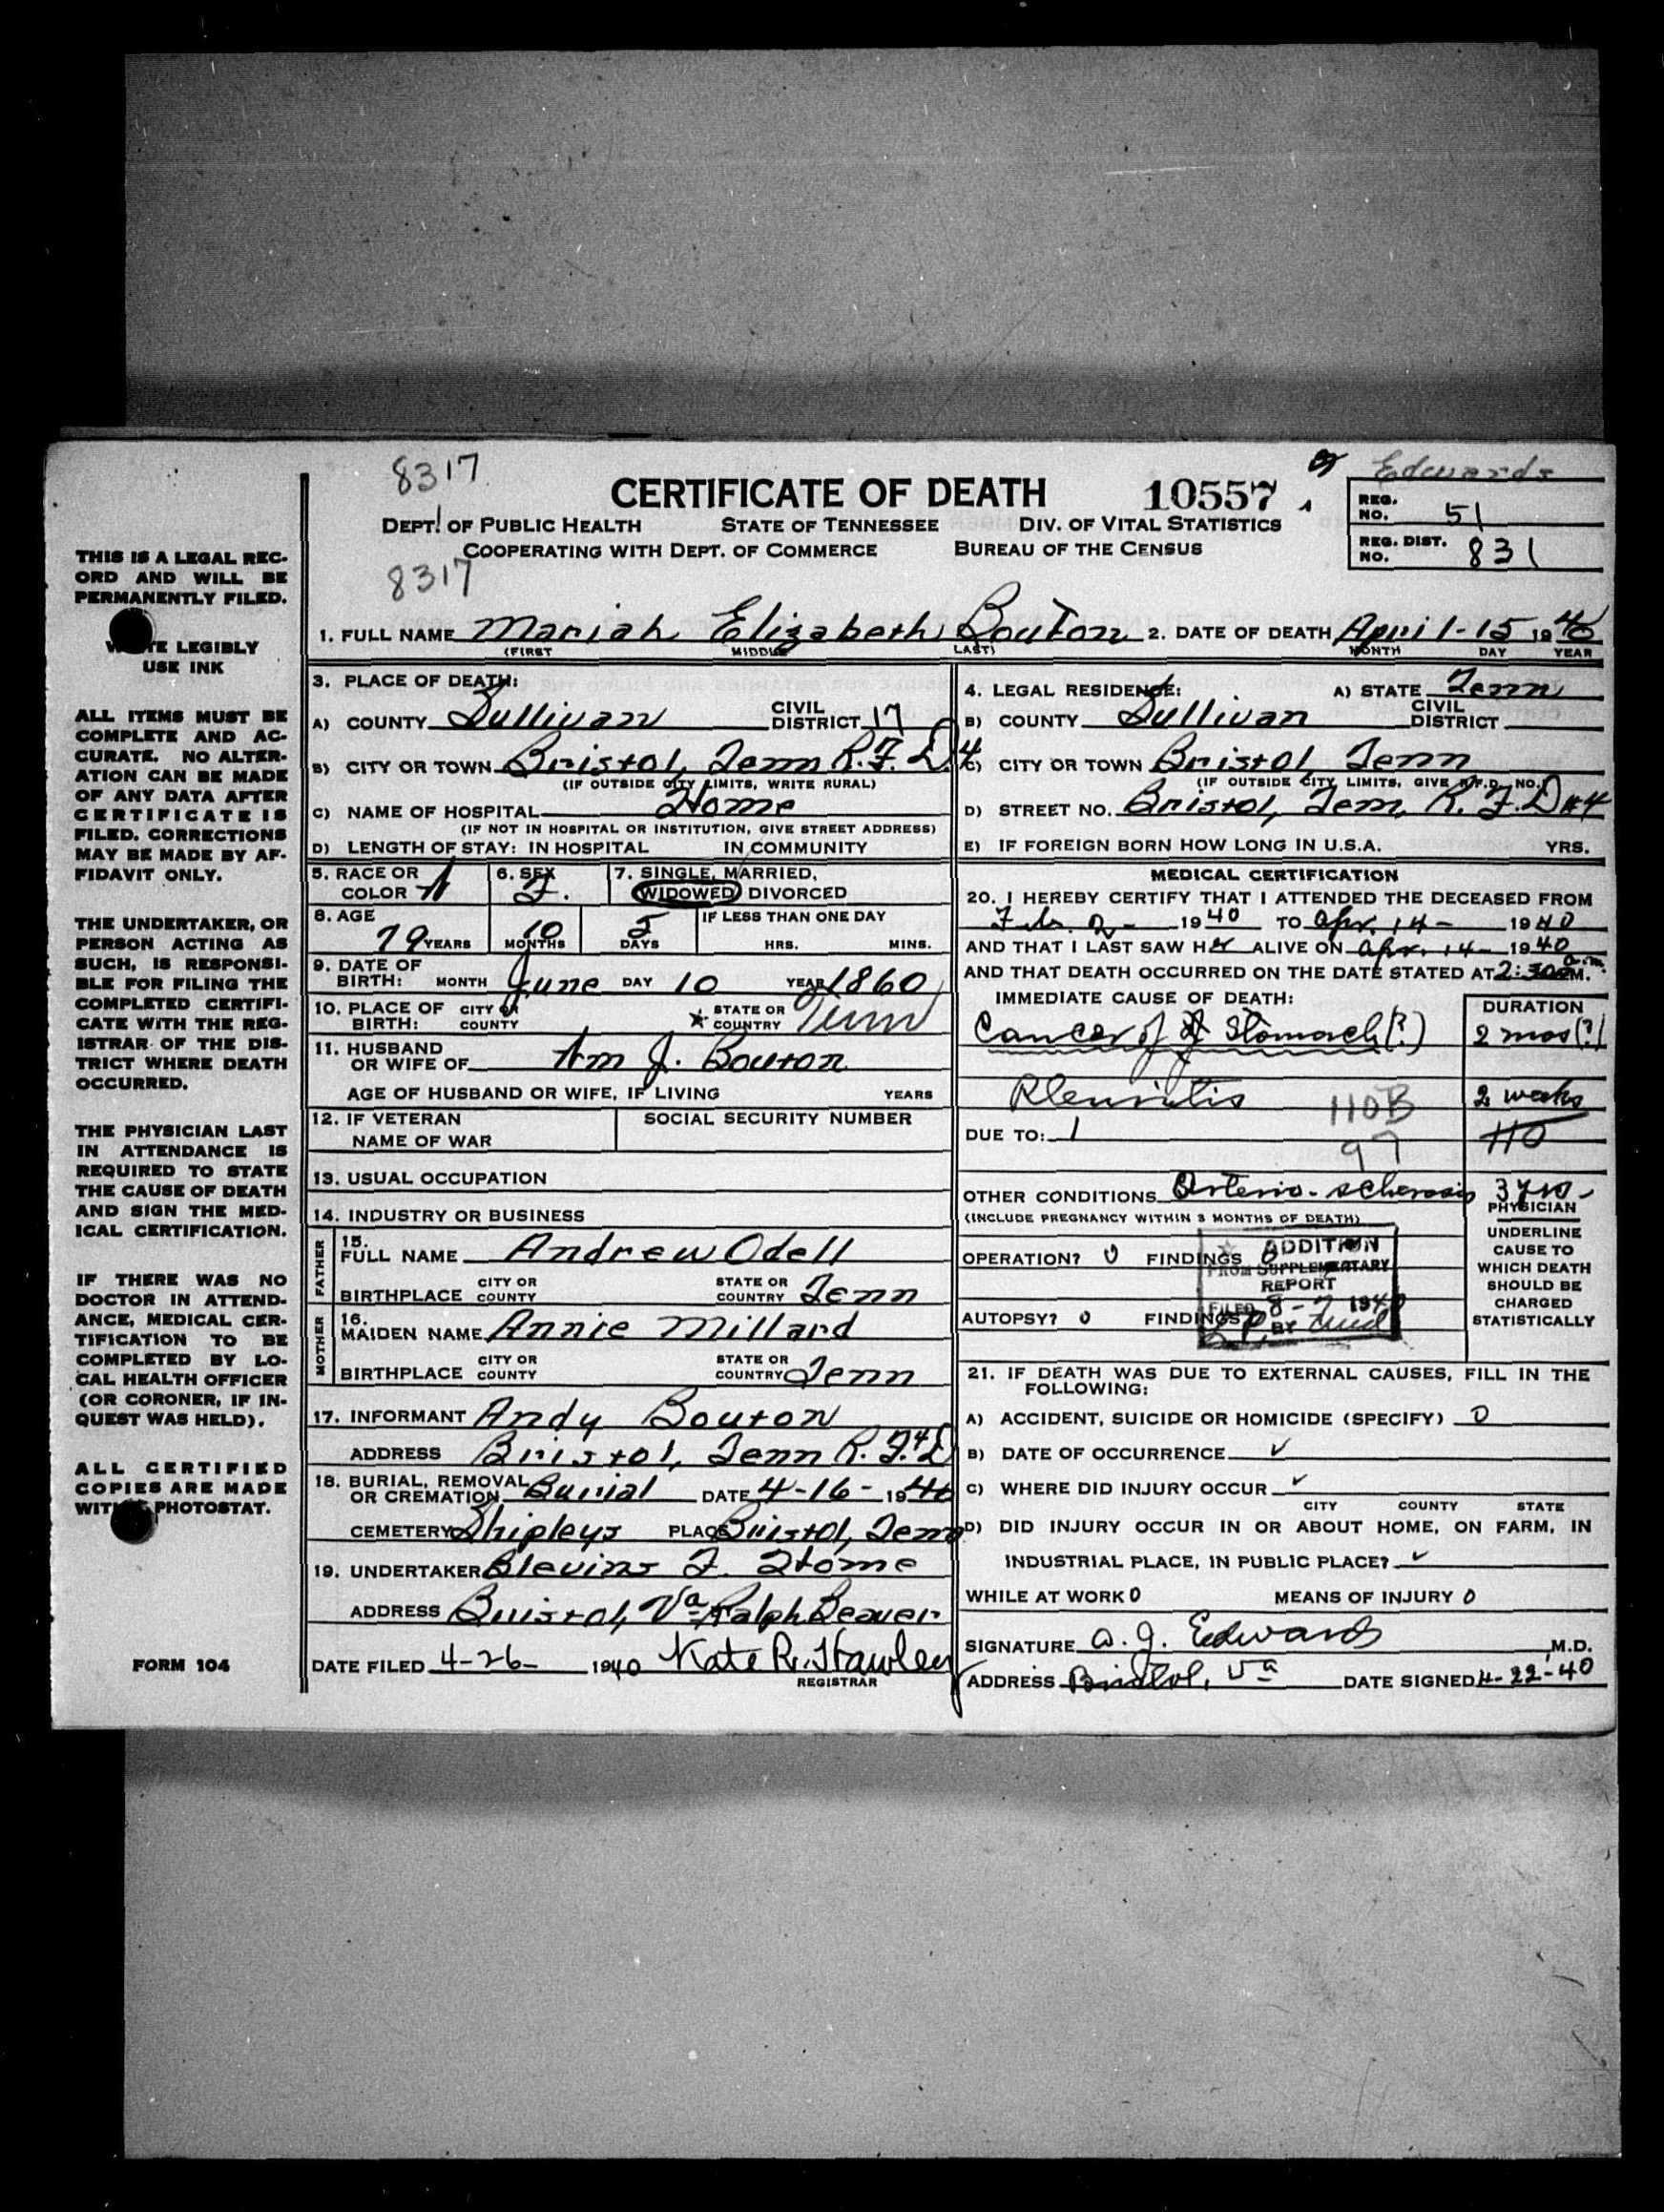 8317
Edwards
CERTIFICATE OF DEATH 10557
REG. NO. 51
DEPT. OF PUBLIC HEALTH STATE OF TENNESSEE DIV. OF VITAL STATISTICS
COOPERATING WITH DEPT. OF COMMERCE BUREAU OF THE CENSUS
REG. DIST. NO. 831
8317
THIS IS A LEGAL REC-
ORD AND WILL BE
PERMANENTLY FILED.
LEGIBLY
USE INK
ALL ITEMS MUST BE
COMPLETE AND AC-
CURATE. NO ALTER-
ATION CAN BE MADE
OF ANY DATA AFTER
CERTIFICATE IS
FILED. CORRECTIONS
MAY BE MADE BY AF-
FIDAVIT ONLY.
THE UNDERTAKER, OR
PERSON ACTING AS
SUCH, IS RESPONSI-
BLE FOR FILING THE
COMPLETED CERTIFI-
CATE WITH THE REG-
ISTRAR OF THE DIS-
TRICT WHERE DEATH
OCCURRED.
THE PHYSICIAN LAST
IN ATTENDANCE IS
REQUIRED TO STATE
THE CAUSE OF DEATH
AND SIGN THE MED-
ICAL CERTIFICATION.
IF THERE WAS NO
DOCTOR IN ATTEND-
ANCE, MEDICAL CER-
TIFICATION TO BE
COMPLETED BY LO-
CAL HEALTH OFFICER
(OR CORONER, IF IN-
QUEST WAS HELD).
ALL CERTIFIED
COPIES ARE MADE
PHOTOSTAT.
FORM 104
1. FULL NAME Mariah Elizabeth Bouton 2. DATE OF DEATH April-15 1940
(FIRST MIDDLE LAST) MONTH DAY YEAR
3. PLACE OF DEATH:
A) COUNTY Sullivan CIVIL DISTRICT 17
B) CITY OR TOWN Bristol, Tenn R.F.D 4
(IF OUTSIDE CITY LIMITS, WRITE RURAL)
C) NAME OF HOSPITAL Home
(IF NOT IN HOSPITAL OR INSTITUTION, GIVE STREET ADDRESS)
D) LENGTH OF STAY: IN HOSPITAL IN COMMUNITY
4. LEGAL RESIDENCE: A) STATE Tenn
B) COUNTY Sullivan CIVIL DISTRICT
C) CITY OR TOWN Bristol Tenn
(IF OUTSIDE CITY LIMITS, GIVE R.F.D. NO.)
D) STREET NO. Bristol, Tenn, R.F.D #4
E) IF FOREIGN BORN HOW LONG IN U.S.A. YRS.
5. RACE OR COLOR 6. SEX F. 7. SINGLE, MARRIED,
WIDOWED, DIVORCED
8. AGE 79 YEARS 10 MONTHS 5 DAYS IF LESS THAN ONE DAY
HRS. MINS.
9. DATE OF BIRTH: MONTH June DAY 10 YEAR 1860
10. PLACE OF BIRTH: CITY OR COUNTY STATE OR COUNTRY Tenn
11. HUSBAND OR WIFE OF Wm J. Bouton
AGE OF HUSBAND OR WIFE, IF LIVING YEARS
12. IF VETERAN NAME OF WAR SOCIAL SECURITY NUMBER
13. USUAL OCCUPATION
14. INDUSTRY OR BUSINESS
FATHER
15. FULL NAME Andrew Odell
BIRTHPLACE CITY OR COUNTY STATE OR COUNTRY Tenn
MOTHER
16. MAIDEN NAME Annie Millard
BIRTHPLACE CITY OR COUNTY STATE OR COUNTRY Tenn
17. INFORMANT Andy Bouton
ADDRESS Bristol, Tenn R.F.D 4
18. BURIAL, REMOVAL OR CREMATION Burial DATE 4-16-1940
CEMETERY Shipleys PLACE Bristol, Tenn
19. UNDERTAKER Blevins F. Home
ADDRESS Bristol, Va Ralph Beaver
DATE FILED 4-26- 1940 Kate R. Hawley
REGISTRAR
MEDICAL CERTIFICATION
20. I HEREBY CERTIFY THAT I ATTENDED THE DECEASED FROM
Feb. 2- 1940 TO Apr. 14- 1940
AND THAT I LAST SAW HER ALIVE ON Apr. 14- 1940
AND THAT DEATH OCCURRED ON THE DATE STATED AT 2:30 a.m. M.
IMMEDIATE CAUSE OF DEATH: DURATION
Cancer of Stomach (?) 2 mos (?)
2 weeks
110B
DUE TO: 110
97
OTHER CONDITIONS Arterio-sclerosis 3 yrs-
(INCLUDE PREGNANCY WITHIN 3 MONTHS OF DEATH)
PHYSICIAN
UNDERLINE
CAUSE TO
WHICH DEATH
SHOULD BE
CHARGED
STATISTICALLY
OPERATION? 0 FINDINGS 0
AUTOPSY? 0 FINDINGS
ADDITION
FROM SUPPLEMENTARY
REPORT
FILED 8-7 1940
BY
21. IF DEATH WAS DUE TO EXTERNAL CAUSES, FILL IN THE
FOLLOWING:
A) ACCIDENT, SUICIDE OR HOMICIDE (SPECIFY) 0
B) DATE OF OCCURRENCE ✓
C) WHERE DID INJURY OCCUR ✓
CITY COUNTY STATE
D) DID INJURY OCCUR IN OR ABOUT HOME, ON FARM, IN
INDUSTRIAL PLACE, IN PUBLIC PLACE? ✓
WHILE AT WORK 0 MEANS OF INJURY 0
SIGNATURE A. J. Edwards M.D.
ADDRESS Bristol, Va DATE SIGNED 4-22-40